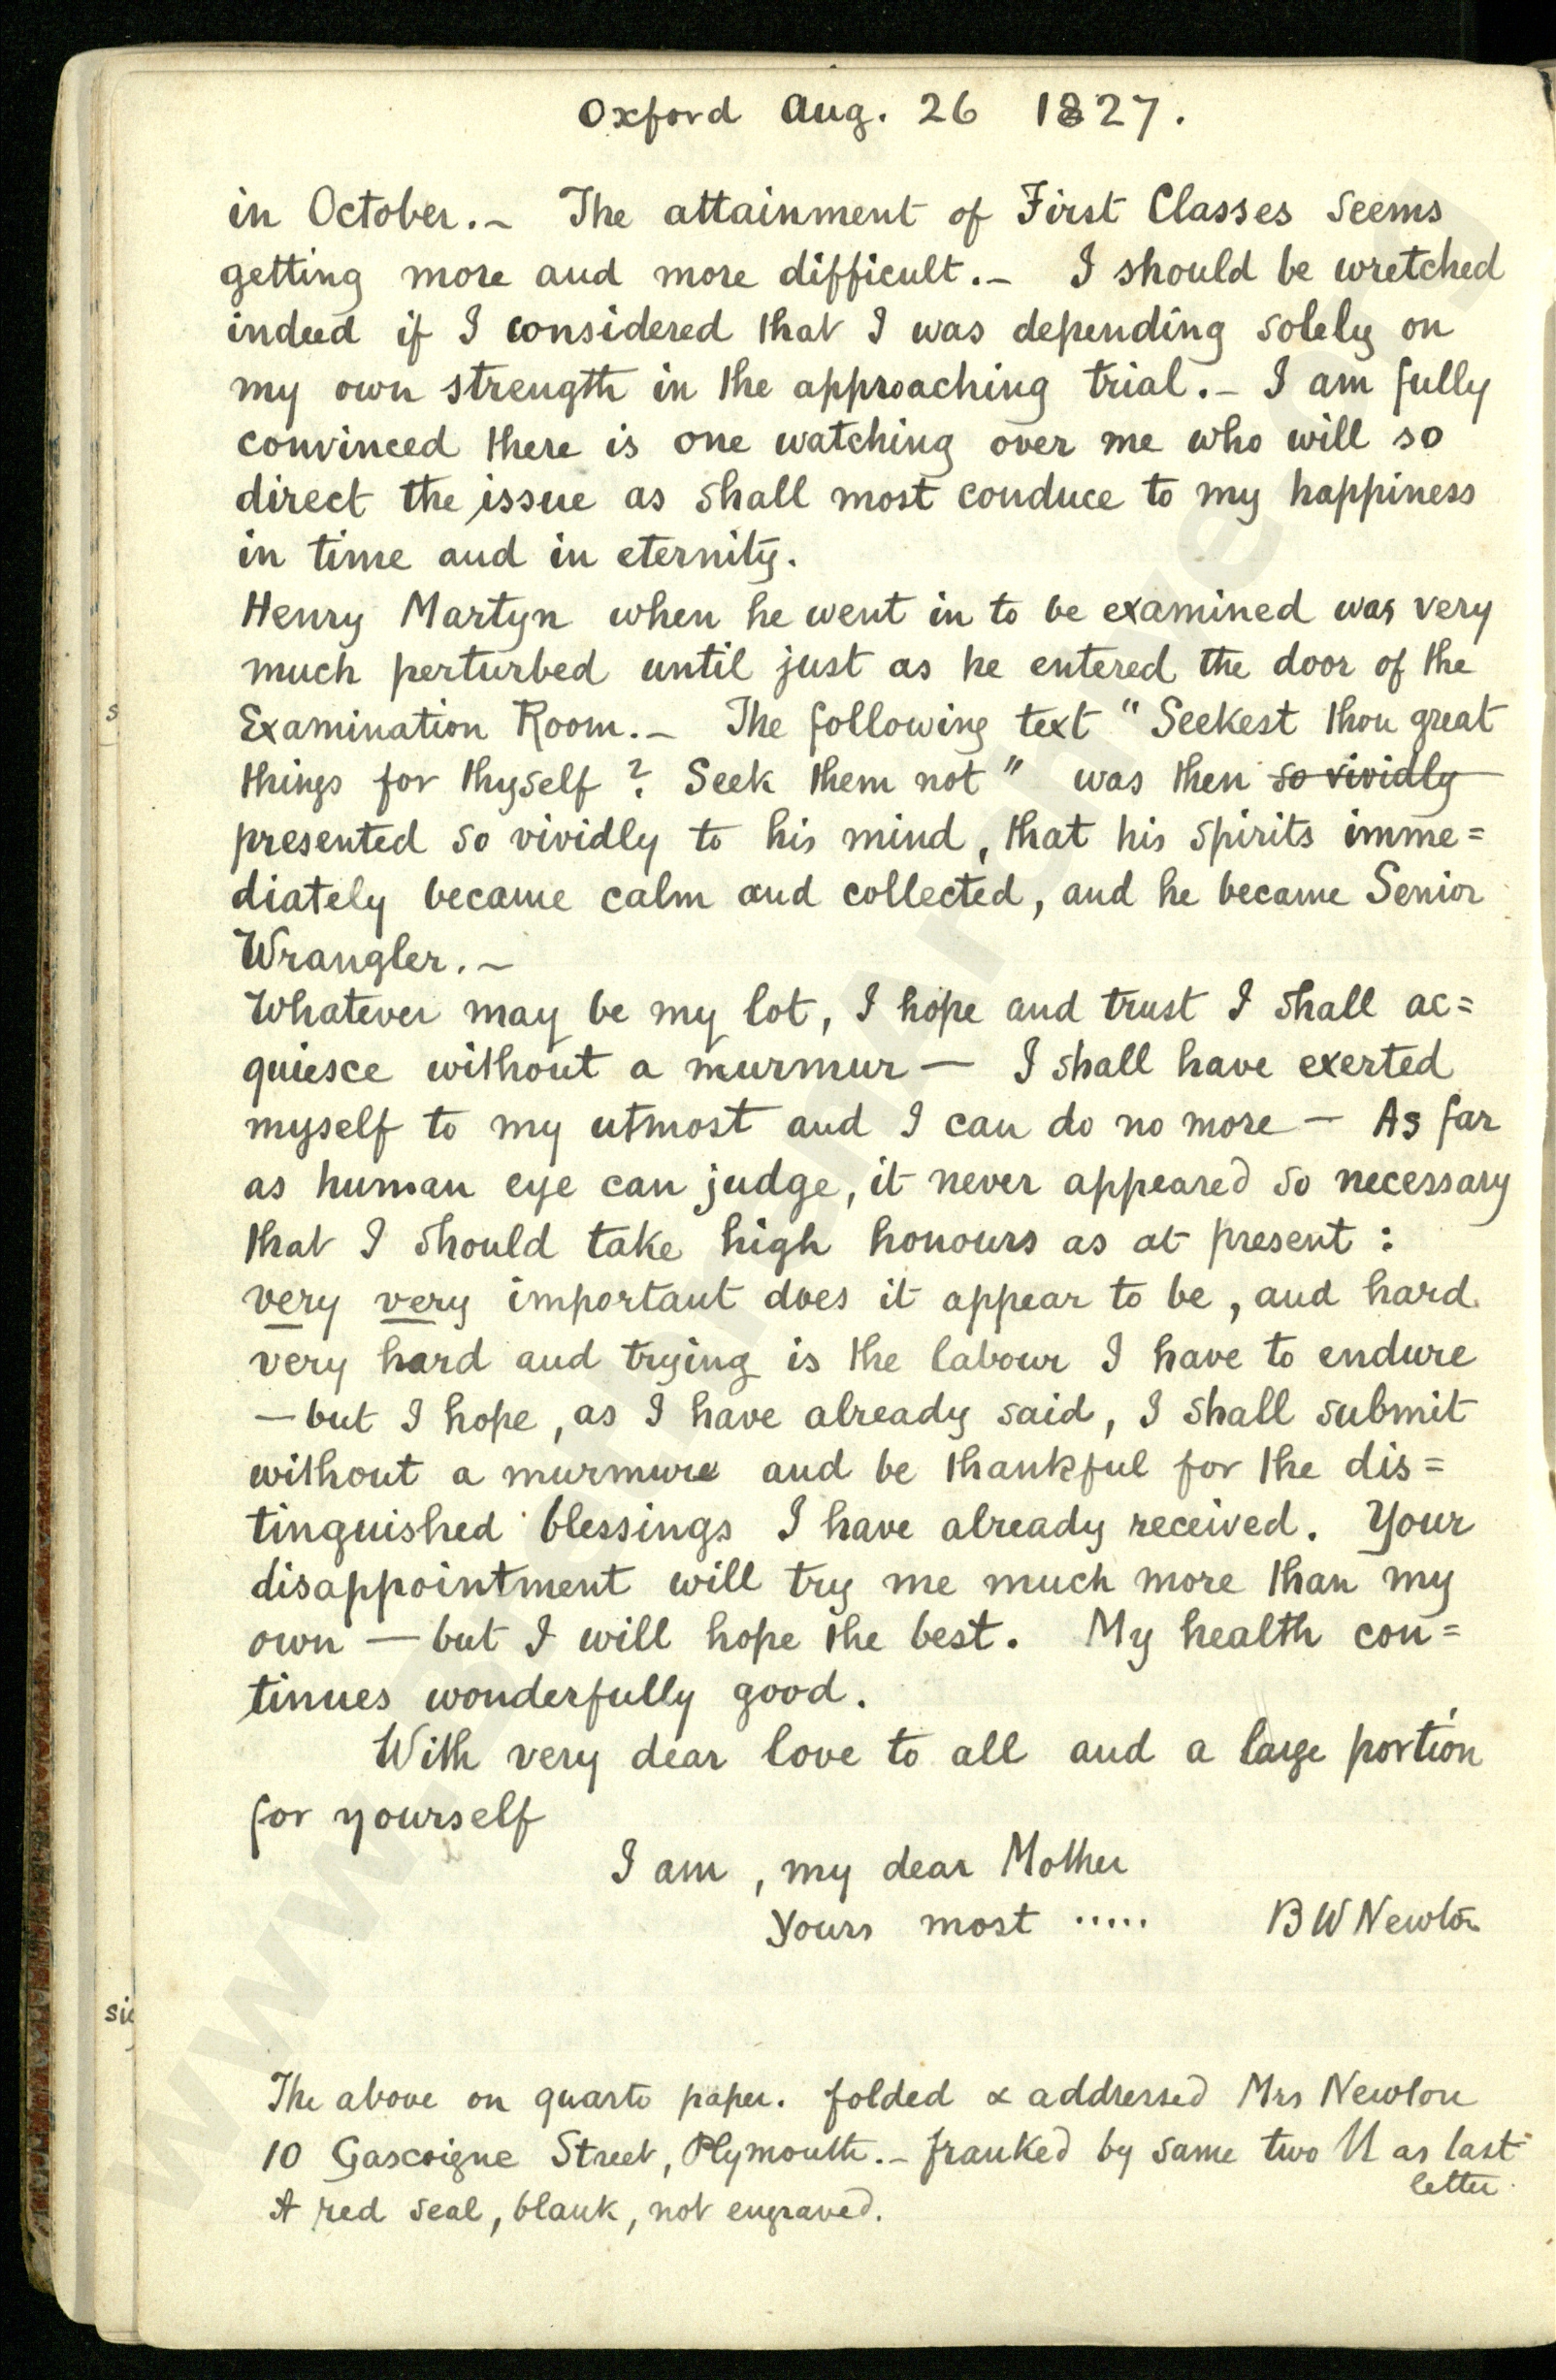 Oxford Aug. 26 1827.
in October.— The attainment of First Classes seems
getting more and more difficult.— I should be wretched
indeed if I considered that I was depending solely on
my own strength in the approaching trial.— I am fully
convinced there is one watching over me who will so
direct the issue as shall most conduce to my happiness
in time and in eternity.
Henry Martyn when he went in to be examined was very
much perturbed until just as he entered the door of the
Examination Room.— The following text "Seekest thou great
things for thyself? Seek them not" was then so vividly
presented so vividly to his mind, that his spirits imme=
diately became calm and collected, and he became Senior
Wrangler.—
Whatever may be my lot, I hope and trust I shall ac=
quiesce without a murmur — I shall have exerted
myself to my utmost and I can do no more — As far
as human eye can judge, it never appeared so necessary
that I should take high honours as at present :
very very important does it appear to be, and hard
very hard and trying is the labour I have to endure
— but I hope, as I have already said, I shall submit
without a murmure and be thankful for the dis=
tinguished blessings I have already received. Your
disappointment will try me much more than my
own — but I will hope the best. My health con=
tinues wonderfully good.
With very dear love to all and a large portion
for yourself
I am, my dear Mother
Yours most ..... B W Newton
The above on quarto paper. folded & addressed Mrs Newton
10 Gascoigne Street, Plymouth.— franked by same two U as last
letter.
A red seal, blank, not engraved.
s
sig